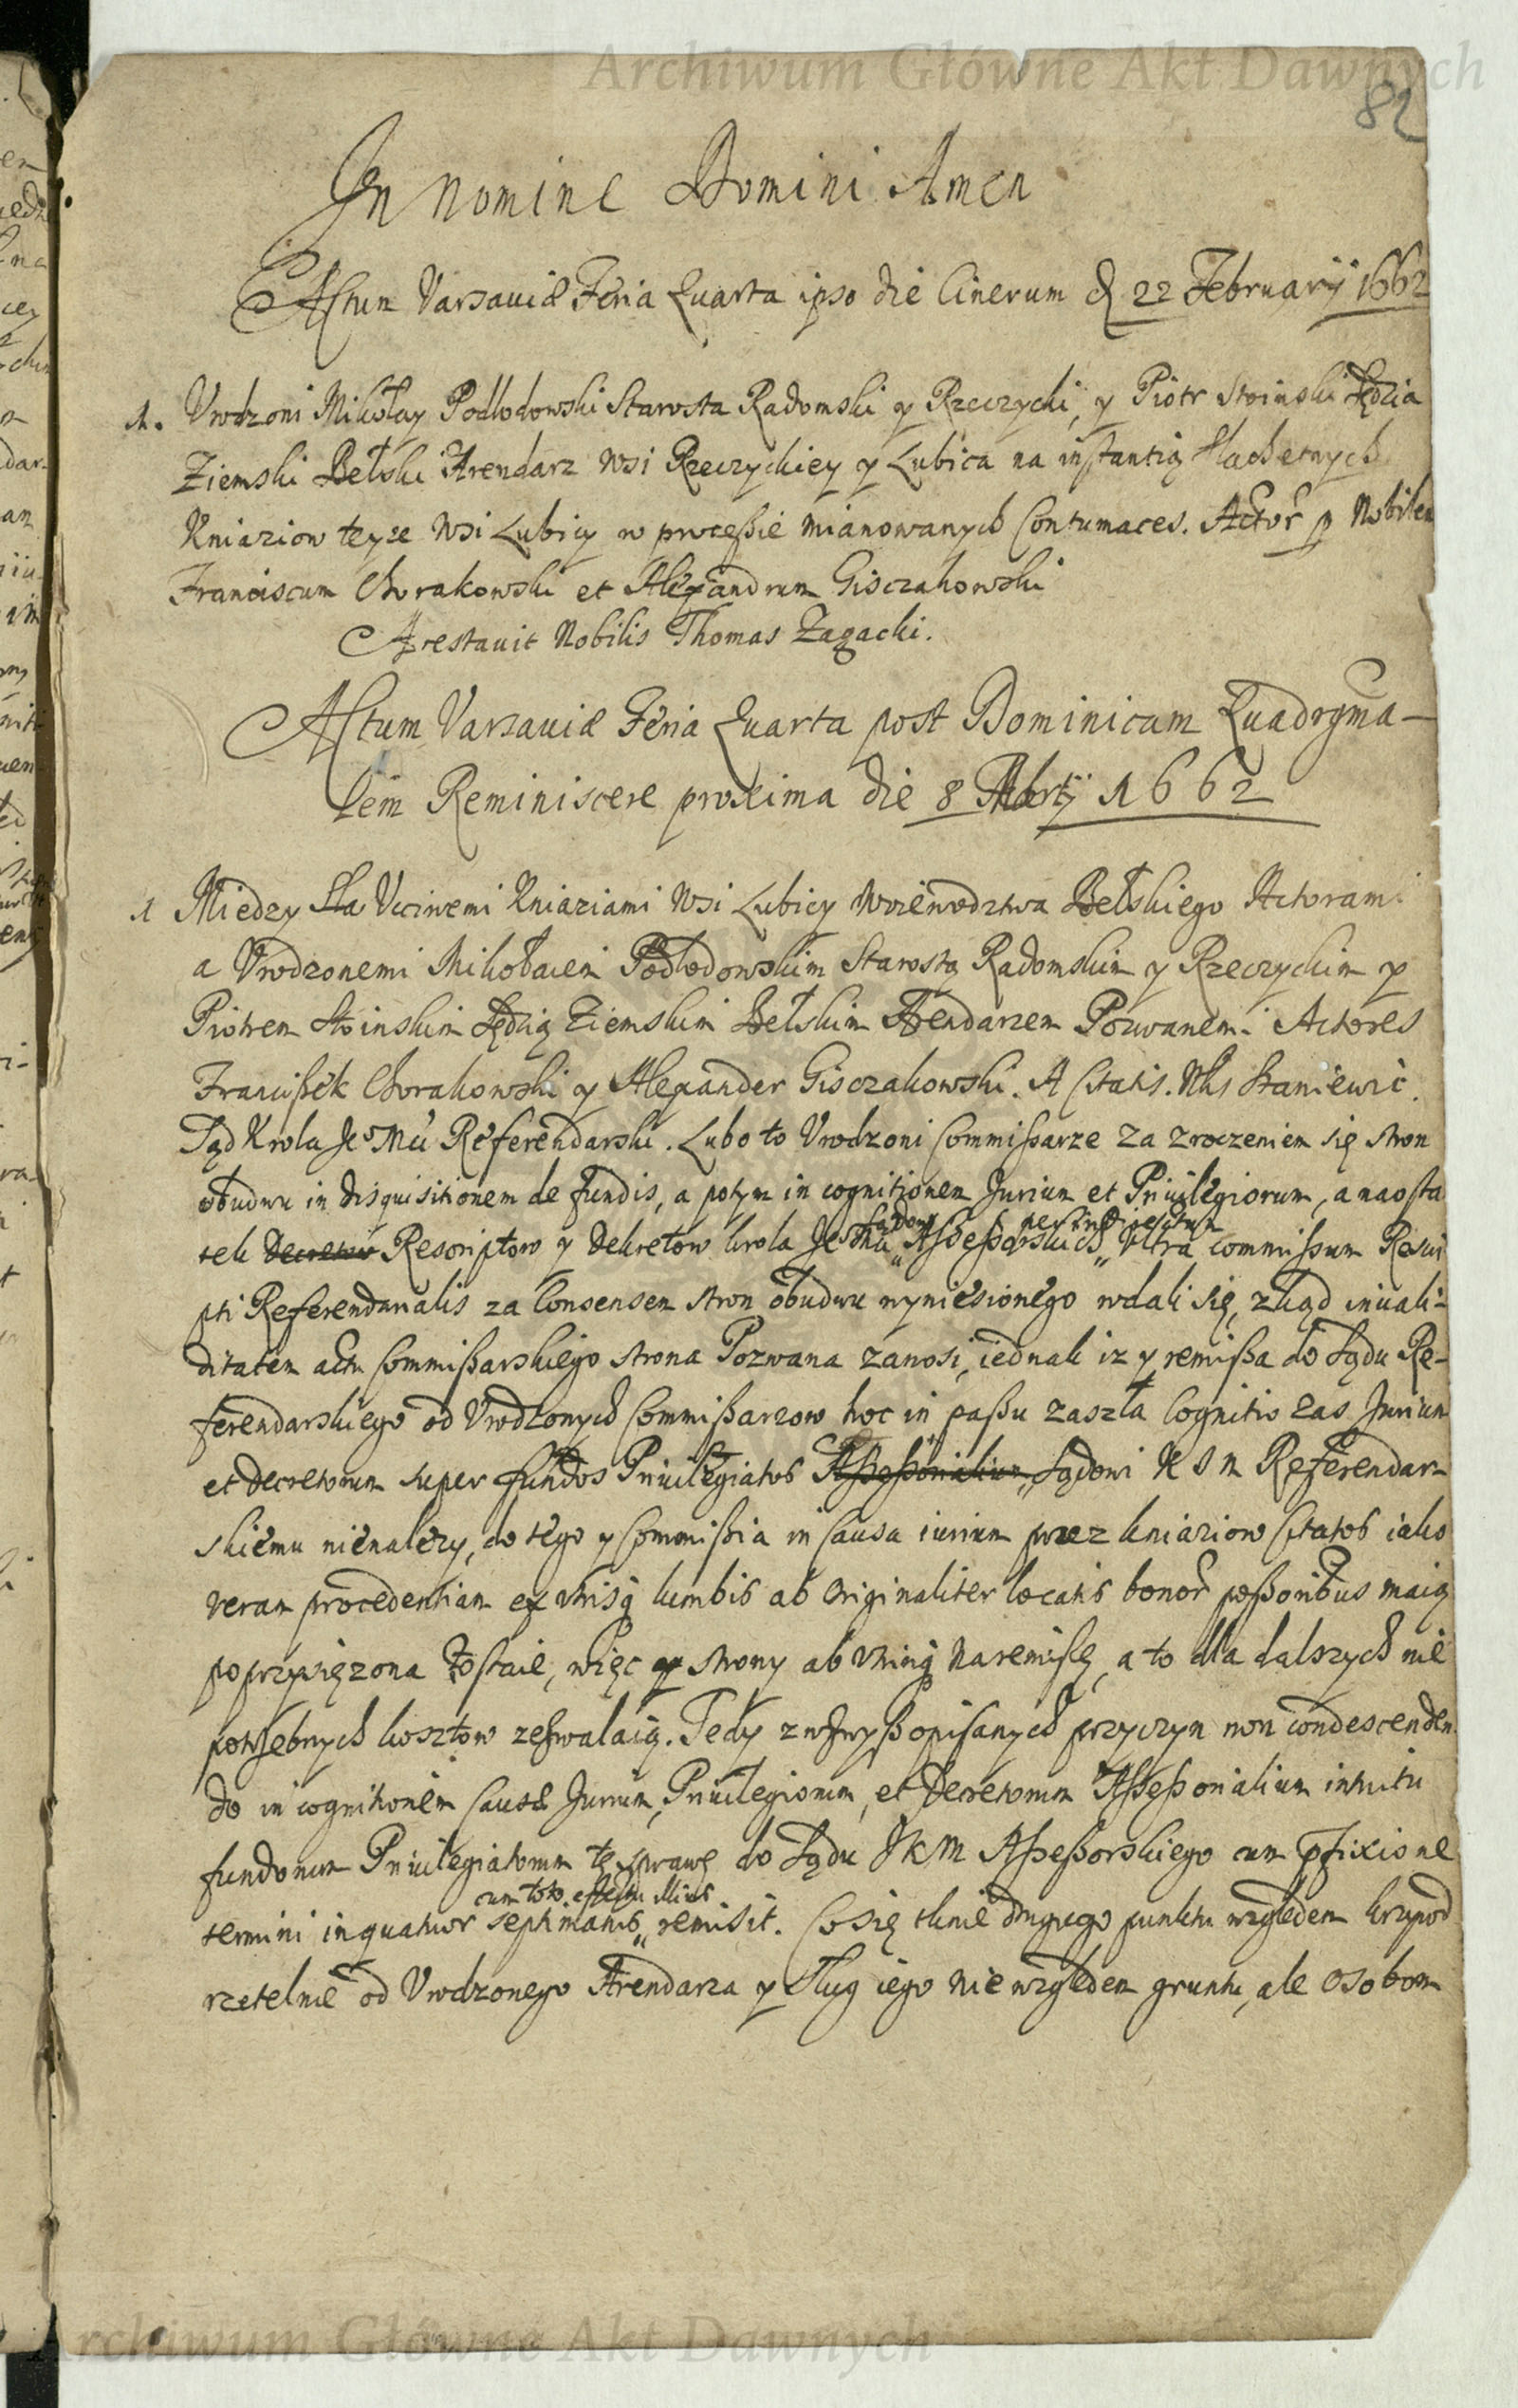 Archiwum Główne Akt Dawnych
82
In Nomine Domini Amen
Actum Varsaviæ Feria Quarta ipso die Cinerum d 22 Februarij 1662
1. Vrodzoni Mikołay Podlodowski Starosta Radomski y Rzeczycki, y Piotr Stoinski Sędzia
Ziemski Bełski Arendarz Wsi Rzeczyckiey y Lubica na instantią Slachetnych
Kniaziow teyze Wsi Lubicy w processie mianowanych Contumaces. Actor p Nobilem
Franciscum Chorakowski et Alexandrum Gisczakowski
Arestavit Nobilis Thomas Zagacki.
Actum Varsaviæ Feria Quarta post Dominicam Quadragma-
lem Reminiscere proxima die 8 Martij 1662
1 Miedzy Sla Vcciwemi Kniaziami Wsi Lubicy Woiewodztwa Bełskiego Actorami
a Vrodzonemi Mikołaiem Podlodowskim Starostą Radomskim y Rzeczyckim y
Piotrem Stoinskim Sędzią Ziemskim Bełskim Arendarzem Pozwanemi Actores
Franciszek Chorakowski y Alexander Gisczakowski. A Citatis. Nlis Staniewic.
Sąd Krola Je° Mći Referendarski. Lubo to Vrodzoni Commissarze za zroczeniem się stron
obudwu in disquisitionem de fundis, a potym in cognitionem Jurium et Privilegiorum, a naosta
tek Decretow Rescriptow y Dekretow krola Je° Mći Sądow Assessorskich per indirectum Vltra commissum Rescri
pti Referendarialis za Consensem stron obudwu wyniesionego wdali się, zkąd invali-
ditatem actu Commissarskiego strona Pozwana zanosi, iednak iz y remissa do Sądu Re-
ferendarskiego od Vrodzonych Commissarzow hoc in passu zaszła Cognitio zas Jurium
et decretorum super fundos Privilegiatos Assessorialium, Sądowi K J M Referendar-
skiemu nienalezy, do tego y Commissia in Causa iurium przez kniaziow Citatos iako
veram procedentiam ex vtrisq lumbis ab originaliter locatis bonor possoribus maią
poprzysięzona zostaie, więc y strony ab vtrinq na remissę, a to dla dalszych nie
potrzebnych kosztow zezwalaią. Tedy z wzwysz opisanych przyczyn non condescenden
do in cognitionem Causæ Jurium, Privilegiorum, et Decretorum Assessorialium intuitu
fundorum Privilegiatorum tę sprawę do Sądu J K M Assessorskiego cum pfixione
termini in quatuor septimanis cum toto effectu illius remisit. Co się tknie drugego punktu względem krzywd
rzetelnie od Vrodzonego Arendarza y Sług iego nie względem gruntu, ale osobom
Archiwum Główne Akt Dawnych